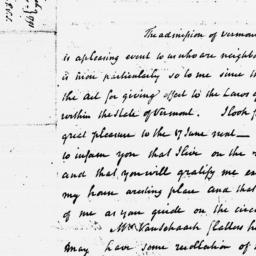 The admission of Vermont
is a pleasing event to us who are neighb
is more particularly so to me since th
the Act for giving effect to the Laws o
within the State of Vermont. I look f
great pleasure to the 17 June next —
to inform you that I live on the
and that you will gratify me
my house a resting place and that
of me as your guide on the circ
Mrs. VanSchaack flatters h
may have some recollection of